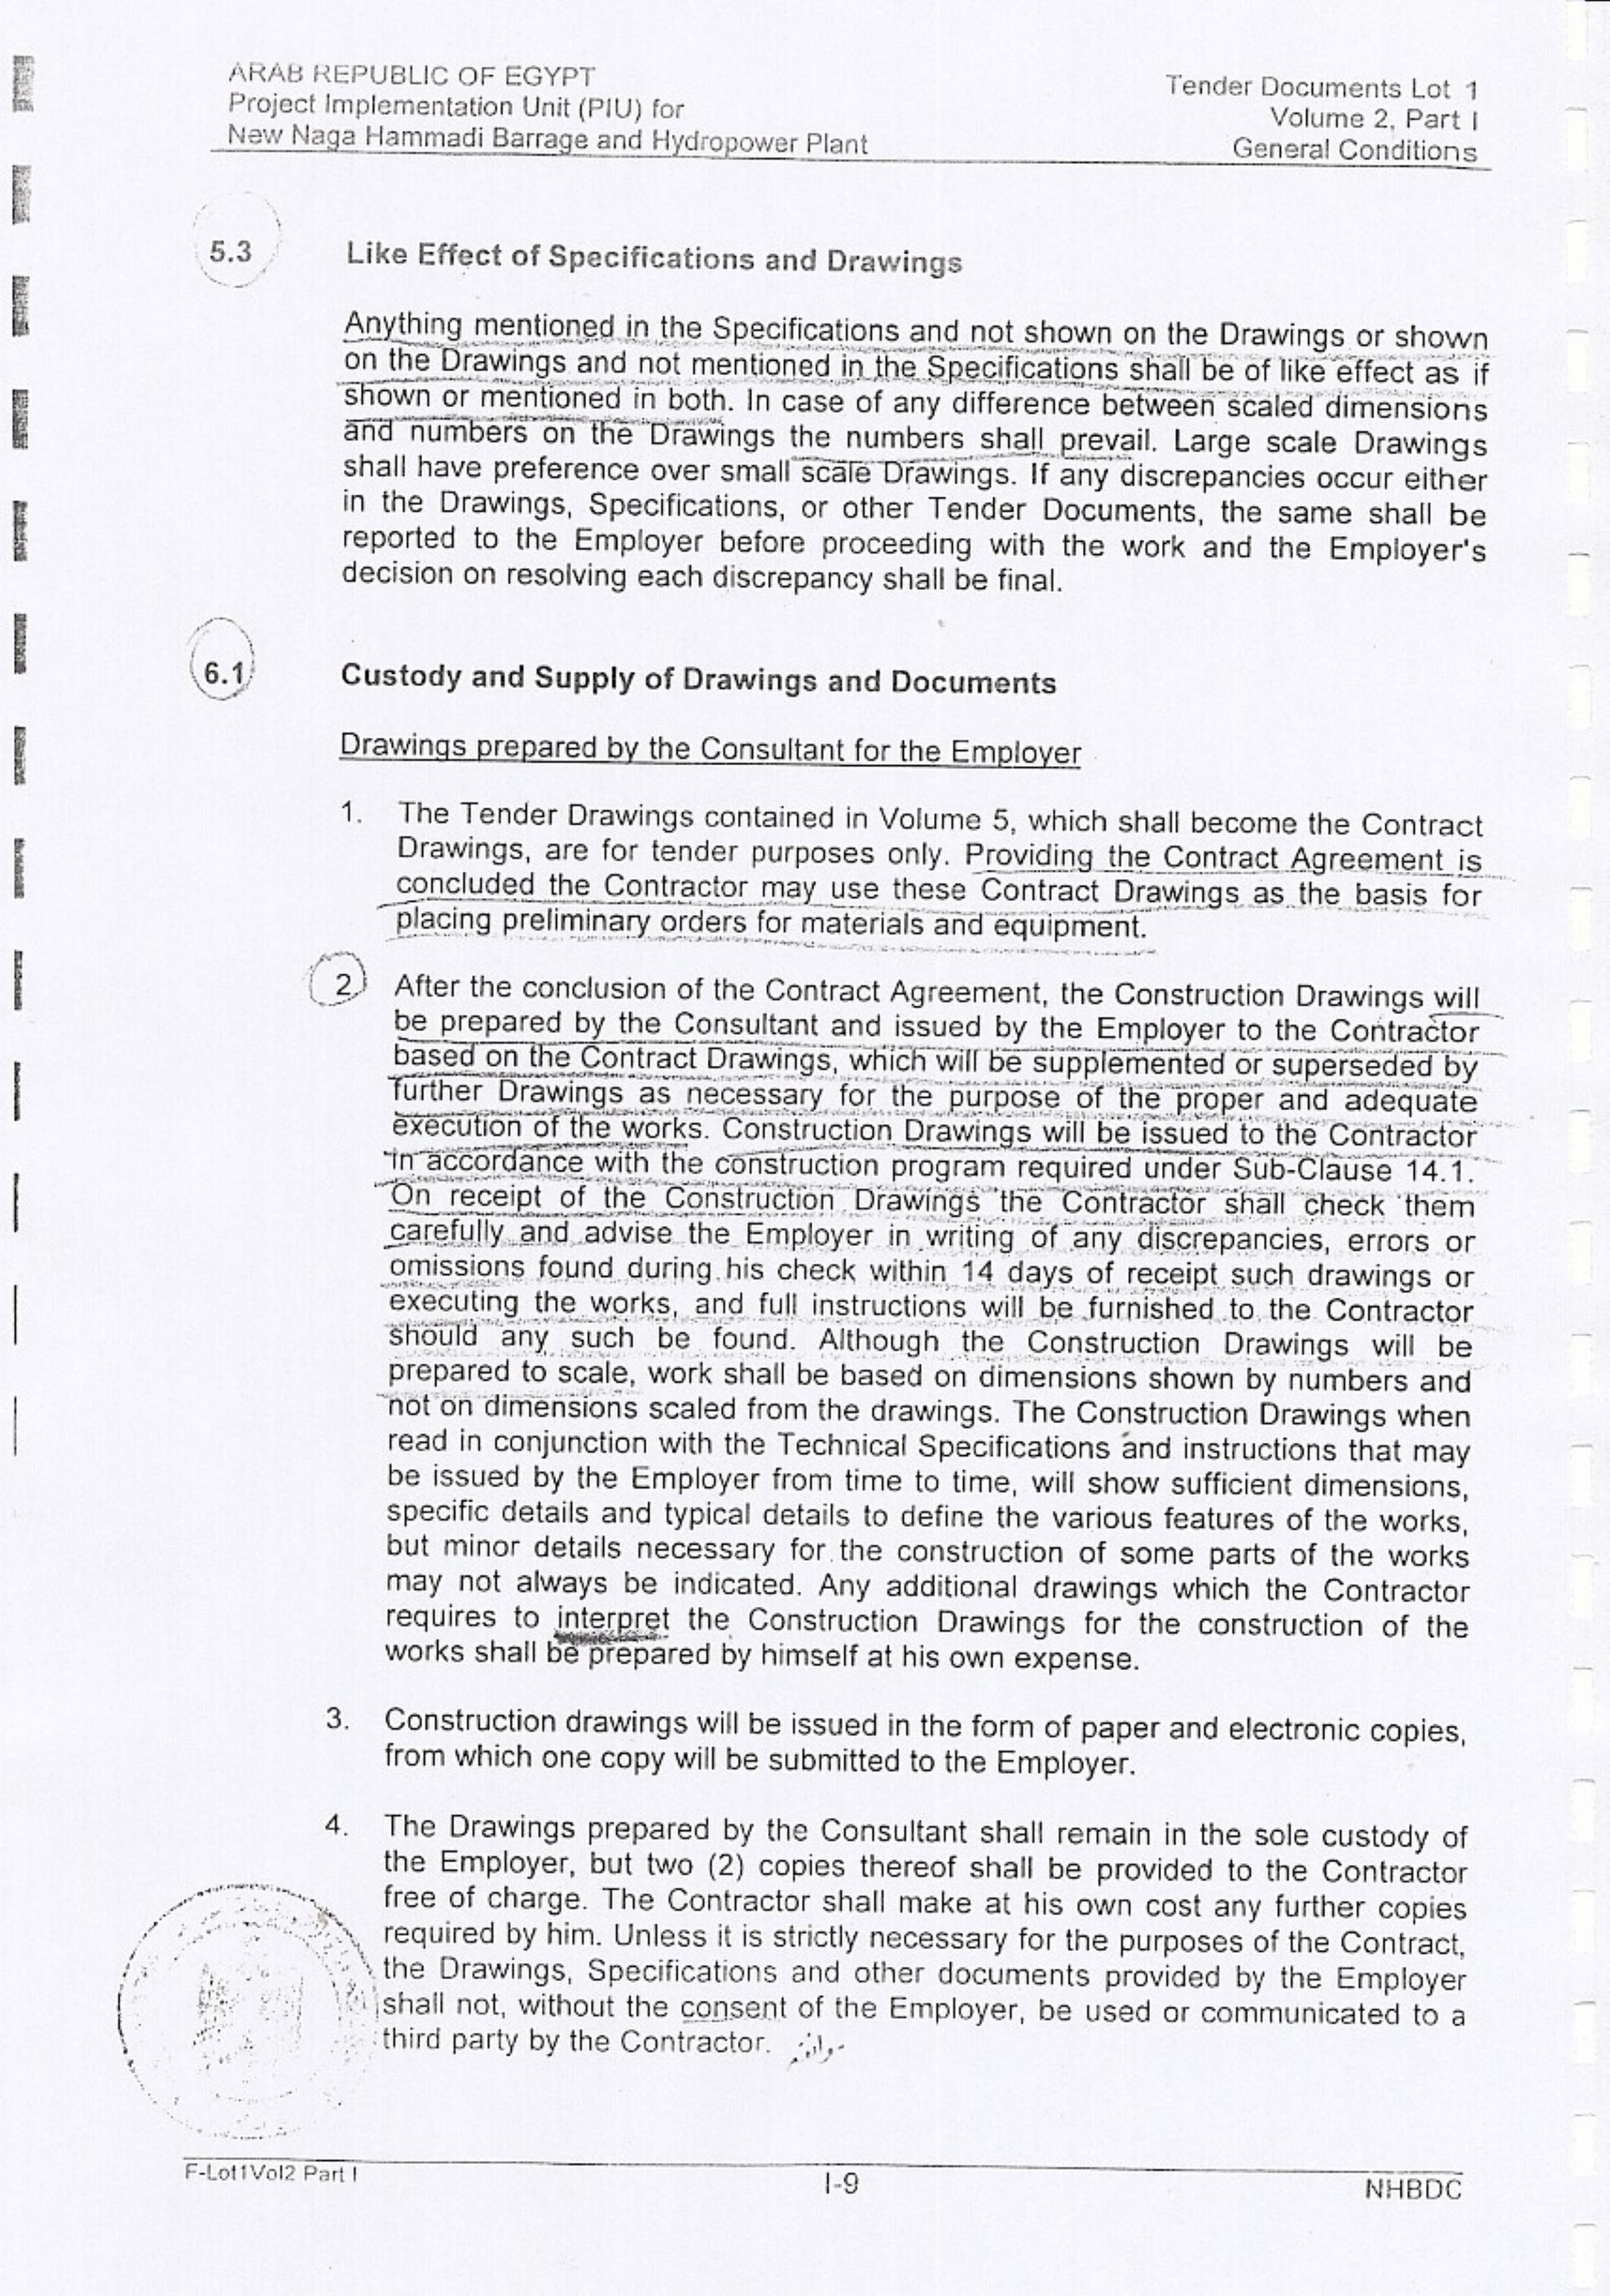 ARAB REPUBLIC OF EGYPT
Project Implementation Unit (PIU) for
New Naga Hammadi Barrage and Hydropower Plant
Tender Documents Lot 1
Volume 2, Part I
General Conditions
5.3 Like Effect of Specifications and Drawings
Anything mentioned in the Specifications and not shown on the Drawings or shown
on the Drawings and not mentioned in the Specifications shall be of like effect as if
shown or mentioned in both. In case of any difference between scaled dimensions
and numbers on the Drawings the numbers shall prevail. Large scale Drawings
shall have preference over small scale Drawings. If any discrepancies occur either
in the Drawings, Specifications, or other Tender Documents, the same shall be
reported to the Employer before proceeding with the work and the Employer's
decision on resolving each discrepancy shall be final.
6.1 Custody and Supply of Drawings and Documents
Drawings prepared by the Consultant for the Employer
1. The Tender Drawings contained in Volume 5, which shall become the Contract
Drawings, are for tender purposes only. Providing the Contract Agreement is
concluded the Contractor may use these Contract Drawings as the basis for
placing preliminary orders for materials and equipment.
2 After the conclusion of the Contract Agreement, the Construction Drawings will
be prepared by the Consultant and issued by the Employer to the Contractor
based on the Contract Drawings, which will be supplemented or superseded by
further Drawings as necessary for the purpose of the proper and adequate
execution of the works. Construction Drawings will be issued to the Contractor
in accordance with the construction program required under Sub-Clause 14.1.
On receipt of the Construction Drawings the Contractor shall check them
carefully and advise the Employer in writing of any discrepancies, errors or
omissions found during his check within 14 days of receipt such drawings or
executing the works, and full instructions will be furnished to the Contractor
should any such be found. Although the Construction Drawings will be
prepared to scale, work shall be based on dimensions shown by numbers and
not on dimensions scaled from the drawings. The Construction Drawings when
read in conjunction with the Technical Specifications and instructions that may
be issued by the Employer from time to time, will show sufficient dimensions,
specific details and typical details to define the various features of the works,
but minor details necessary for the construction of some parts of the works
may not always be indicated. Any additional drawings which the Contractor
requires to interpret the Construction Drawings for the construction of the
works shall be prepared by himself at his own expense.
3. Construction drawings will be issued in the form of paper and electronic copies,
from which one copy will be submitted to the Employer.
4. The Drawings prepared by the Consultant shall remain in the sole custody of
the Employer, but two (2) copies thereof shall be provided to the Contractor
free of charge. The Contractor shall make at his own cost any further copies
required by him. Unless it is strictly necessary for the purposes of the Contract,
the Drawings, Specifications and other documents provided by the Employer
shall not, without the consent of the Employer, be used or communicated to a
third party by the Contractor.
F-Lot1Vol2 Part I
I-9
NHBDC